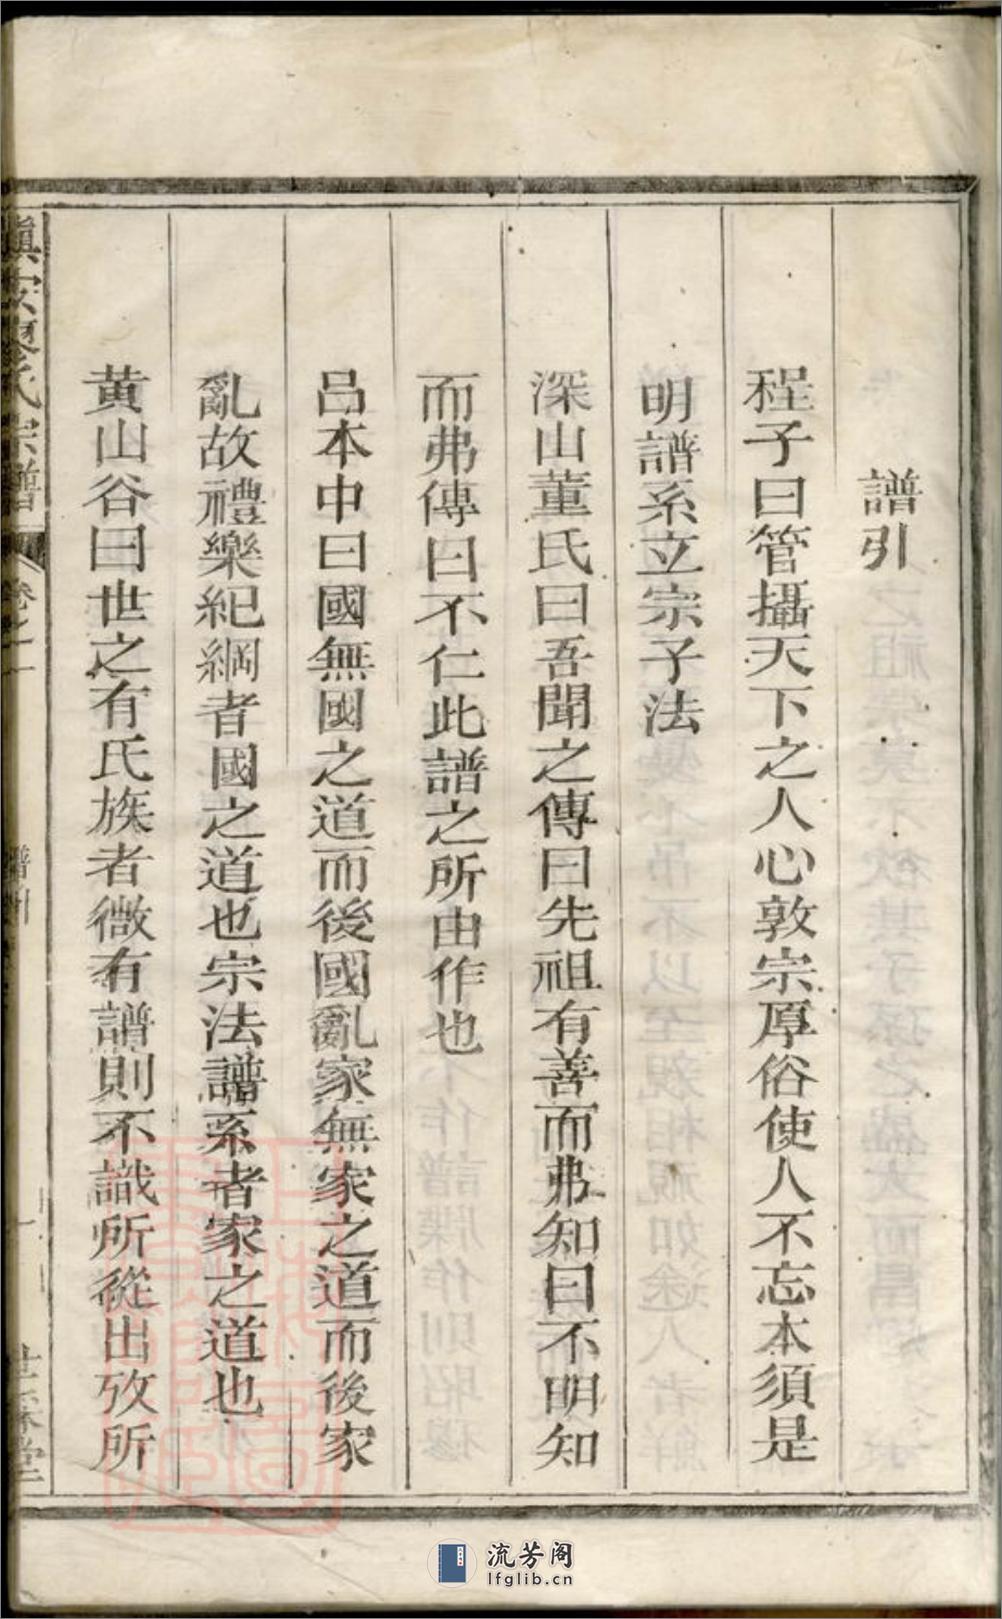 譜引
程子曰管攝天下之人心敦宗厚俗使人不忘本須是
明譜系立宗子法
深山董氏曰吾聞之傳曰先祖有善而弗知曰不明知
而弗傳曰不仁此譜之所由作也
呂本中曰國無國之道而後國亂家無家之道而後家
亂故禮樂紀綱者國之道也宗法譜系者家之道也
黄山谷曰世之有氏族者微有譜則不識所從出攷所
氏宗譜
卷之二
譜引
一
堂
流芳阁
lfglib.cn